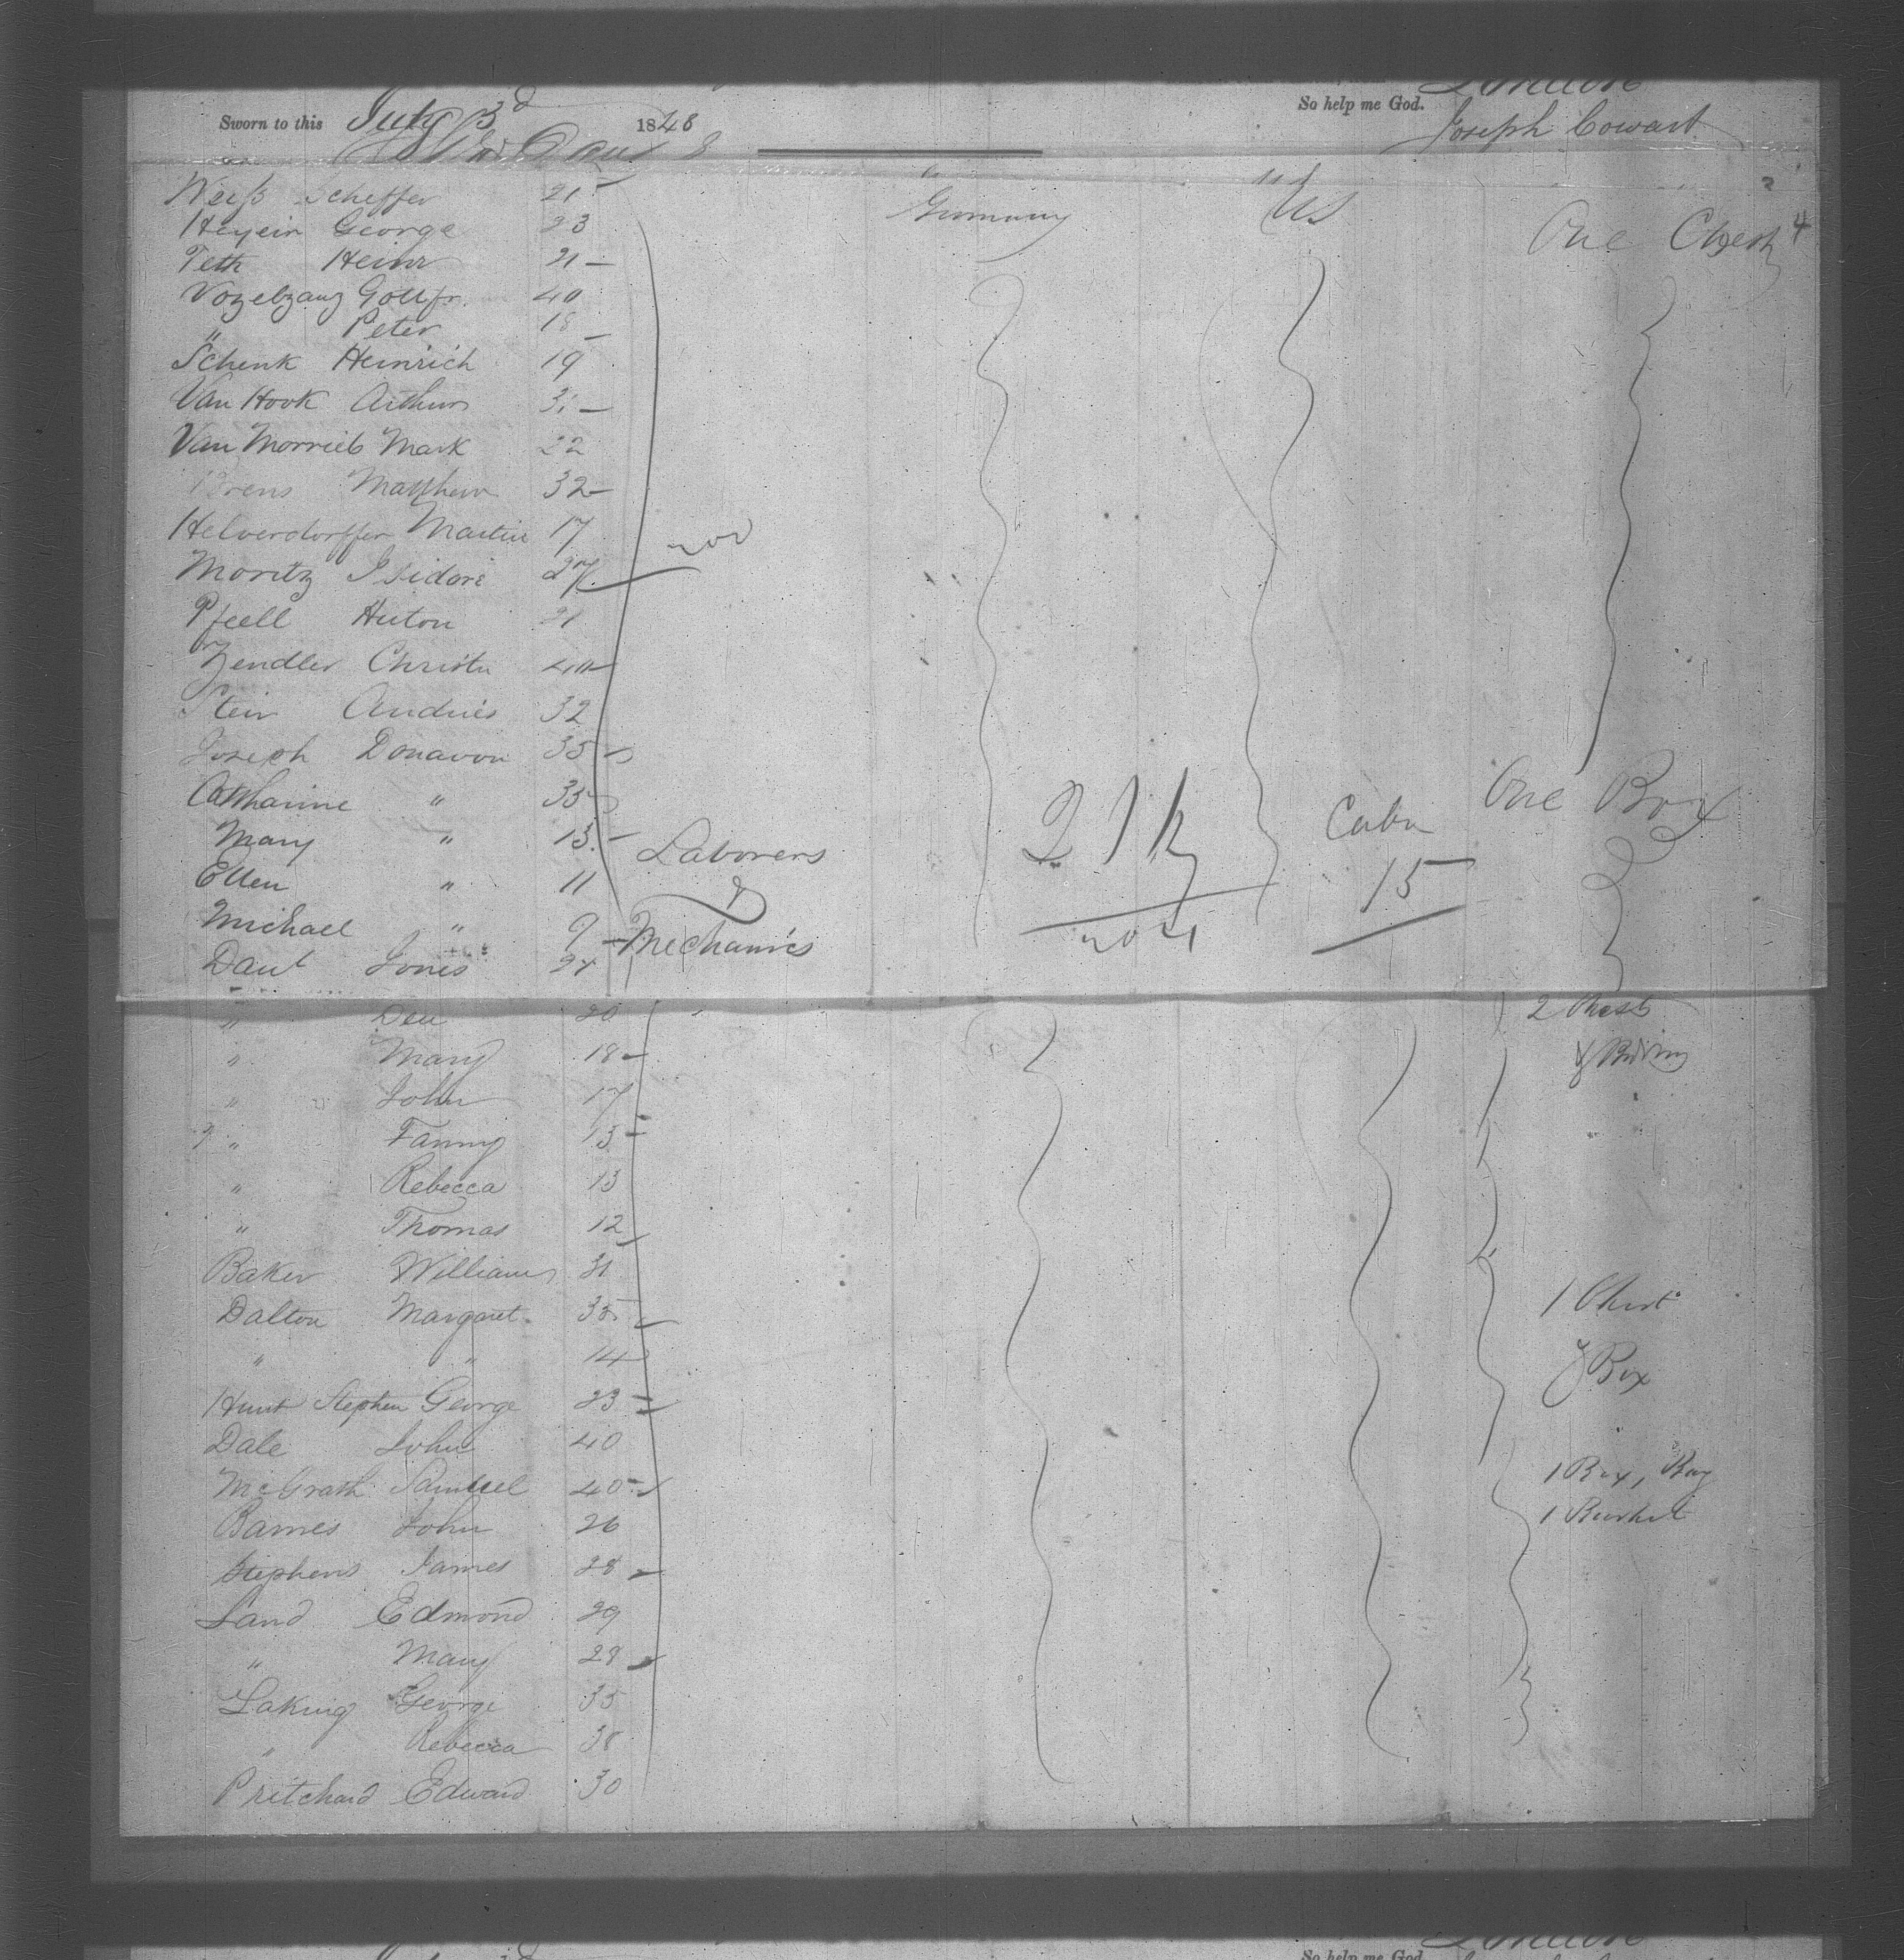 London
Sworn to this July 3d 1848 So help me God. Joseph Cowart
Weiß Scheffer 21 Germany US
Heyein George 23 One Chest 4
Teth Heinr 21
Vogelzang Gottfr. 40
" Peter 18
Schenk Heinrich 19
Van Hook Arthur 31
Van Morrieb Mark 22
Matthew 32
Helverdorffer Martin 17
Moritz Isidore 27
Pfeell Huton 21
Zendler Christn
Stein Andries 32
Joseph Donavon 35
Catharine " 35 One Box
Mary " 13 Laborers
Ellen " 11 & 15
Michael " 9 Mechanics
Daut Jones
" 20 2 Chests
" Mary 18 &
" John 17
" Fanny 13
" Rebecca 13
" Thomas 12
Baker William 31 1 Chest
Dalton Margaret 35
" " 14 & Box
Hunt Stephen George 23
Dale John 40
McGrath Samuel 40 1 Box, Bag
Barnes John 26 1
Stephens James 28
Land Edmond 29
" Mary 28
Laking George 35
" Rebecca 38
Pritchard Edward 30
London
So help me God.